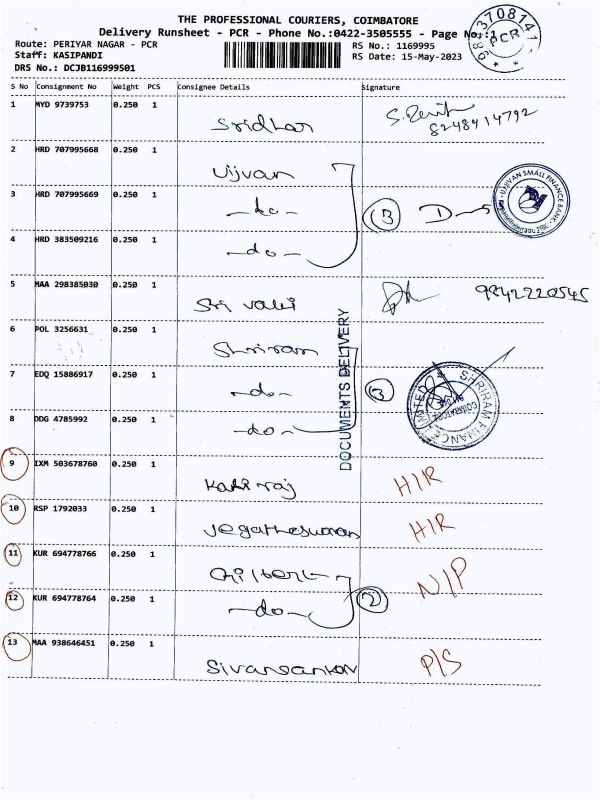 THE PROFESSIONAL COURIERS, COIMBATORE
Delivery Runsheet - PCR - Phone No.:0422-3505555 - Page No.:1
Route: PERIYAR NAGAR - PCR
RS No.: 1169995
Staff: KASIPANDI
RS Date: 15-May-2023
DRS No.: DCJB116999501
3708141
PCR
S No Consignment No Weight PCS Consignee Details Signature
1 MYD 9739753 0.250 1 Sridhar 8248414792
2 HRD 707995668 0.250 1 Ujjvan
3 HRD 707995669 0.250 1 -do- 3
4 HRD 383509216 0.250 1 -do-
UJJIVAN SMALL FINANCE BANK
5 MAA 298385030 0.250 1 Sri Valli 9842220545
6 POL 3256631 0.250 1 Shriram
7 EDQ 15886917 0.250 1 -do- 3
8 DDG 4785992 0.250 1 -do-
DOCUMENTS DELIVERY
SHRIRAM FINANCE LIMITED
COIMBATORE
9 IXM 503678760 0.250 1 HIR
10 RSP 1792033 0.250 1 Jegatheswaran HIR
11 KUR 694778766 0.250 1 Gilbert N/P
12 KUR 694778764 0.250 1 -do- 2
13 MAA 938646451 0.250 1 Sivansankar P/S